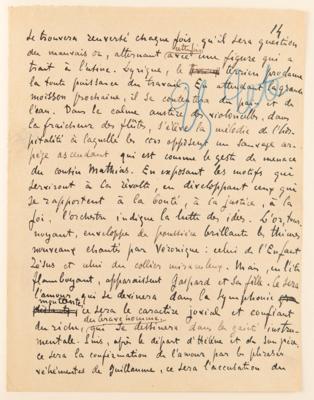 14
se trouvera renversé chaque fois, qu'il sera question
du mauvais or, alternant cette fois avec une figure qui a
trait à l'usine. Lyrique, le terrien proclame
la toute puissance du travail. En attendant la grande
moisson prochaine, il se contentera du pain et de
l'eau. Dans le calme austère des violoncelles, dans
la fraîcheur des flûtes, s'élève la mélodie de l'hos-
pitalité à laquelle les cors opposent un sauvage ar-
pège ascendant qui est comme le geste de menace
du cousin Mathias. En exposant les motifs qui
serviront à la révolte, en développant ceux qui
se rapportent à la bonté, à la justice, à la
foi, l'orchestre indique la lutte des idées. L'or, tour-
noyant, enveloppe de poussière brillante les thèmes
nouveaux chantés par Véronique : celui de l'Enfant
Jésus et celui du collier miraculeux. Mais, en l'été
flamboyant, apparaissent Gaspard et sa fille. Ce sera
l'amour qui se devinera dans la symphonie
ce sera le caractère jovial et confiant
du riche, du brave homme, qui se dessinera dans la gaieté instru-
mentale. Puis, après le départ d'Hélène et de son père,
ce sera la confirmation de l'amour par les phrases
véhémentes de Guillaume, ce sera l'accusation du